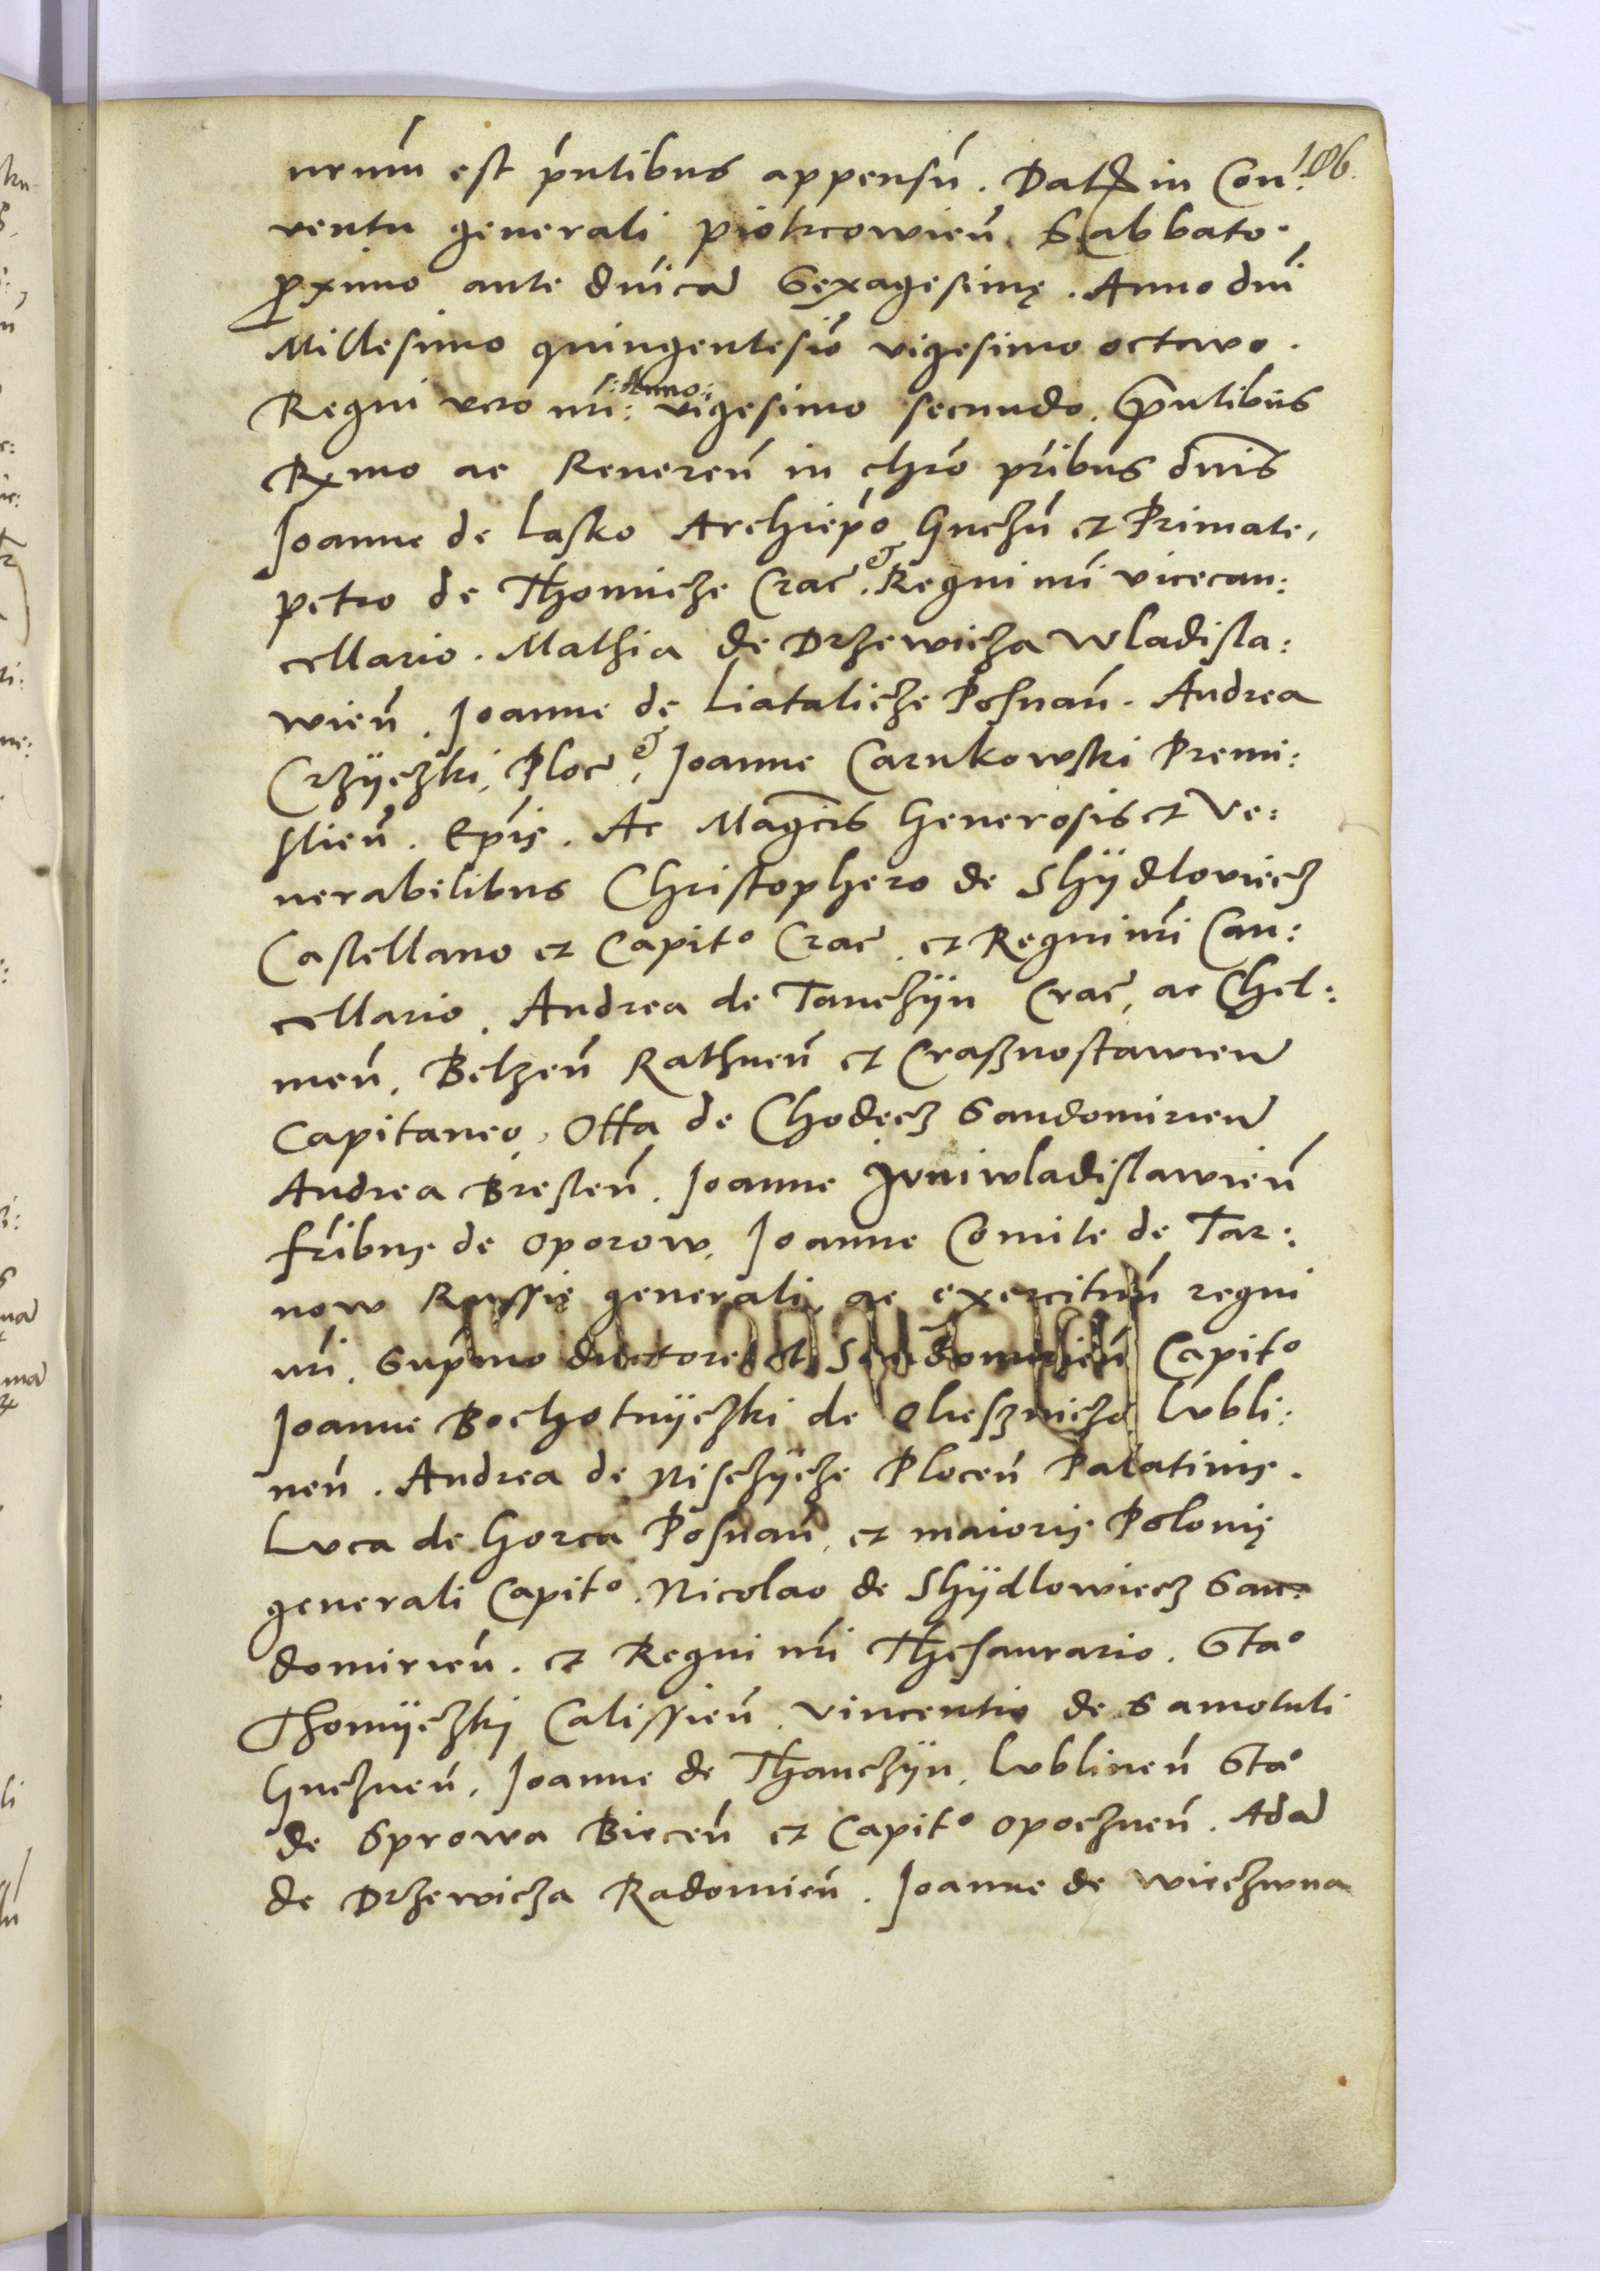 106.
nrum est pńtibus appensū. Dat in Con:
ventu generali piotrcowień Sabbato
proximo ante dnicā Sexagesimę. Anno dni
Millesimo quingentesiō vigesimo octavo.
Regni vero nri: /:Anno:/ vigesimo secundo. Pńtibus
Rxmo ac Reveren̄ in chrō pribus dnis
Joanne de Lasko Archiepō Gnezn̄ et Primate,
petro de Thomicze Crac̄. Regni nri vicecan:
cellario. Mathia de Drzewicza Wladisla:
wien̄. Joanne de Liataliczhe Posnan̄. Andrea
Crzÿczki, Ploc̄, Joanne Carnkowski Premi:
slien̄. Epis. Ac Magcis Generosis et Ve:
nerabilibus Christophero de Shÿdloviecz
Castellano et Capito Crac̄. et Regni nri Can:
cellario. Andrea de Tanczÿn Crac̄, ac Chel:
men̄. Belzen̄ Rathnen̄ et Crasznostawien̄
Capitaneo, Otta de Chodecz Sandomirien̄
Andrea Bresten̄. Joanne Juniwladislawien̄
fribus de Oporow, Joanne Comite de Tar:
now Russię generali, ac exercituū regni
nri. Supmo ductore et Sandomirien̄ Capito
Joanne Bochotnÿczki de Olesznicza Lubli:
nen̄. Andrea de Nisczÿcze Plocen̄ Palatinis.
Luca de Gorca Posnan̄, et maioris Polonię
generali Capito. Nicolao de Shÿdlowiecz San:
domirien̄. et Regni nri Thesaurario. Stao
Thomÿczkj Calissien̄. vincentio de Samotuli
Gneznen̄. Joanne de Thanczÿn, Lublinen̄ Stao
de Sprowa Biecen̄ et Capito Opocznen̄. Adā
de Drzewicza Radomien̄. Joanne de Wieczwna